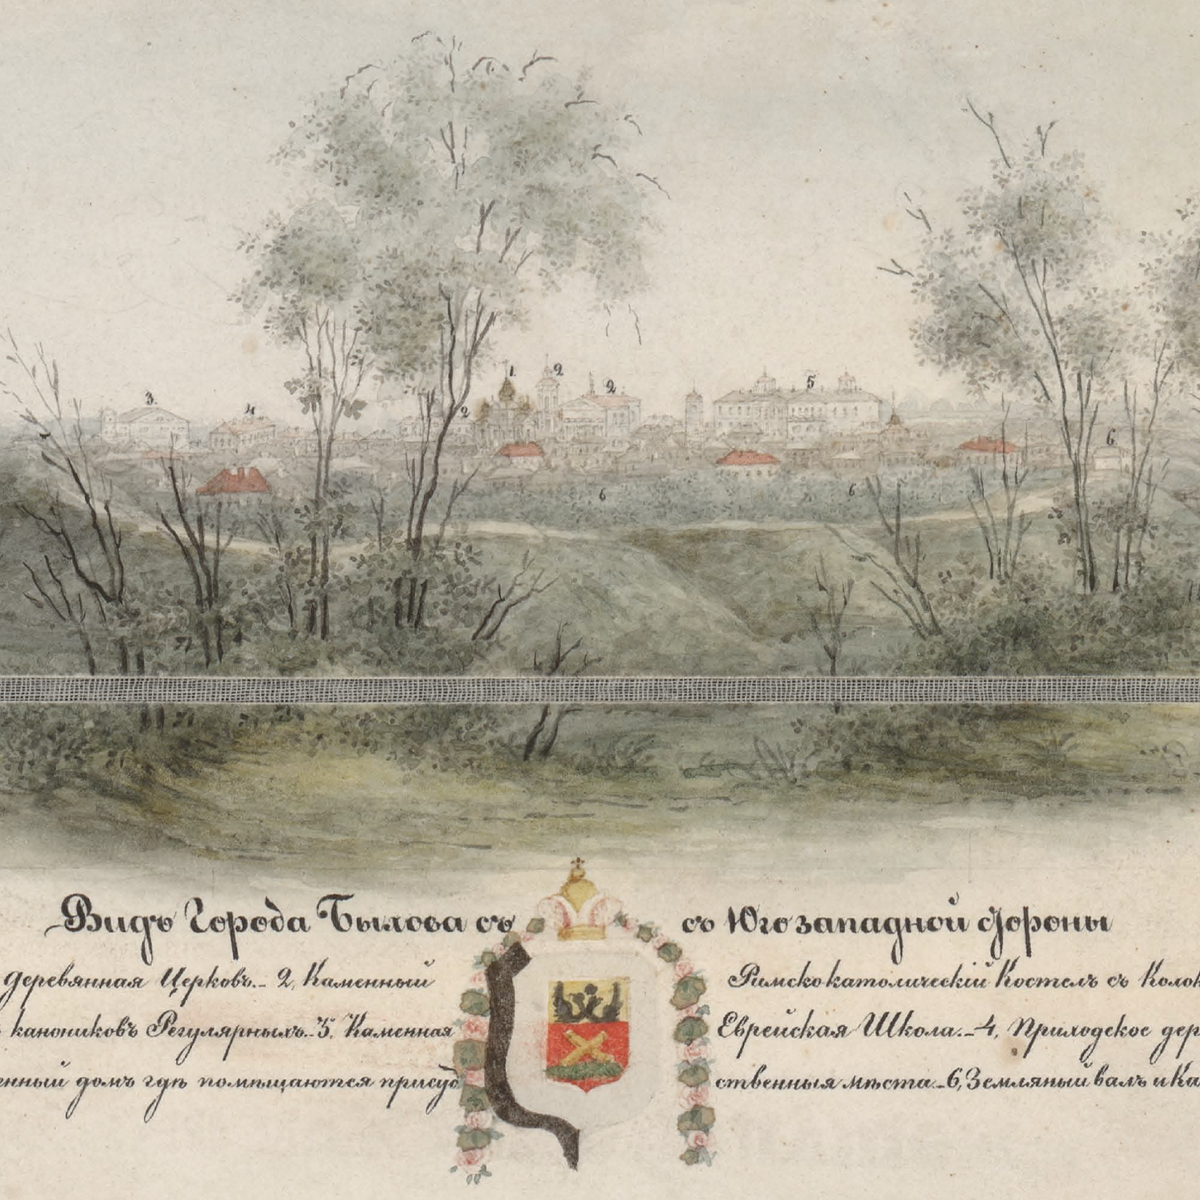 3. 4 2 1. 2 2 5 6
6 6
Видъ Города Быхова съ съ Югозападной стороны
деревянная Церковь.- 2, Каменный Римскокатолическій Костелъ съ Коло
канониковъ Регулярныхъ.-3, Каменная Еврейская Школа.-4, Приходское дер
енный домъ гдѣ помѣщаются присуд ственныя мѣста.-6, Земляный валъ и Ка